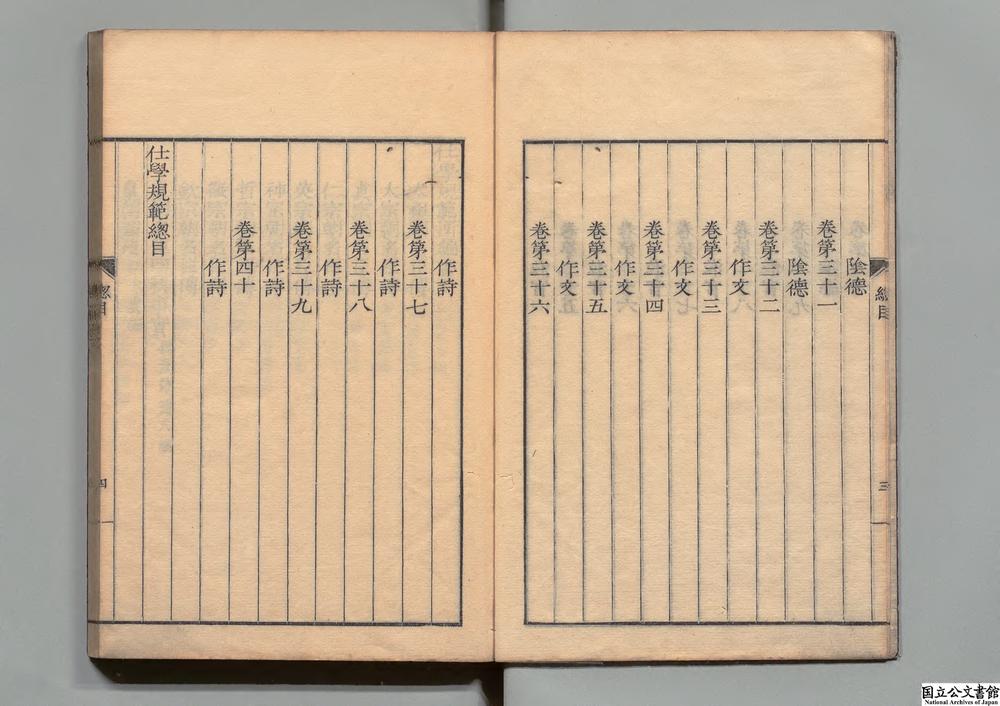 總目
三
陰德
卷第三十一
陰德
卷第三十二
作文
卷第三十三
作文
卷第三十四
作文
卷第三十五
作文
卷第三十六
作詩
卷第三十七
作詩
卷第三十八
作詩
卷第三十九
作詩
卷第四十
作詩
仕學規範總目
總目
四
国立公文書館
National Archives of Japan